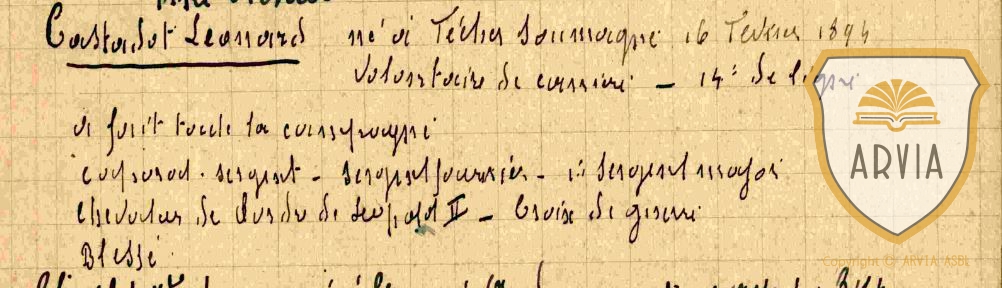 Castadot Leonard né à Fécher Soumagne 16 Février 1894
Volontaire de carrière – 14e de ligne
a fait toute la campagne
caporal. sergent – sergent fourrier – 1er sergent major
Chevalier de l'ordre de Leopold II – Croix de guerre
Blessé
ARVIA
Copyright © ARVIA ASBL